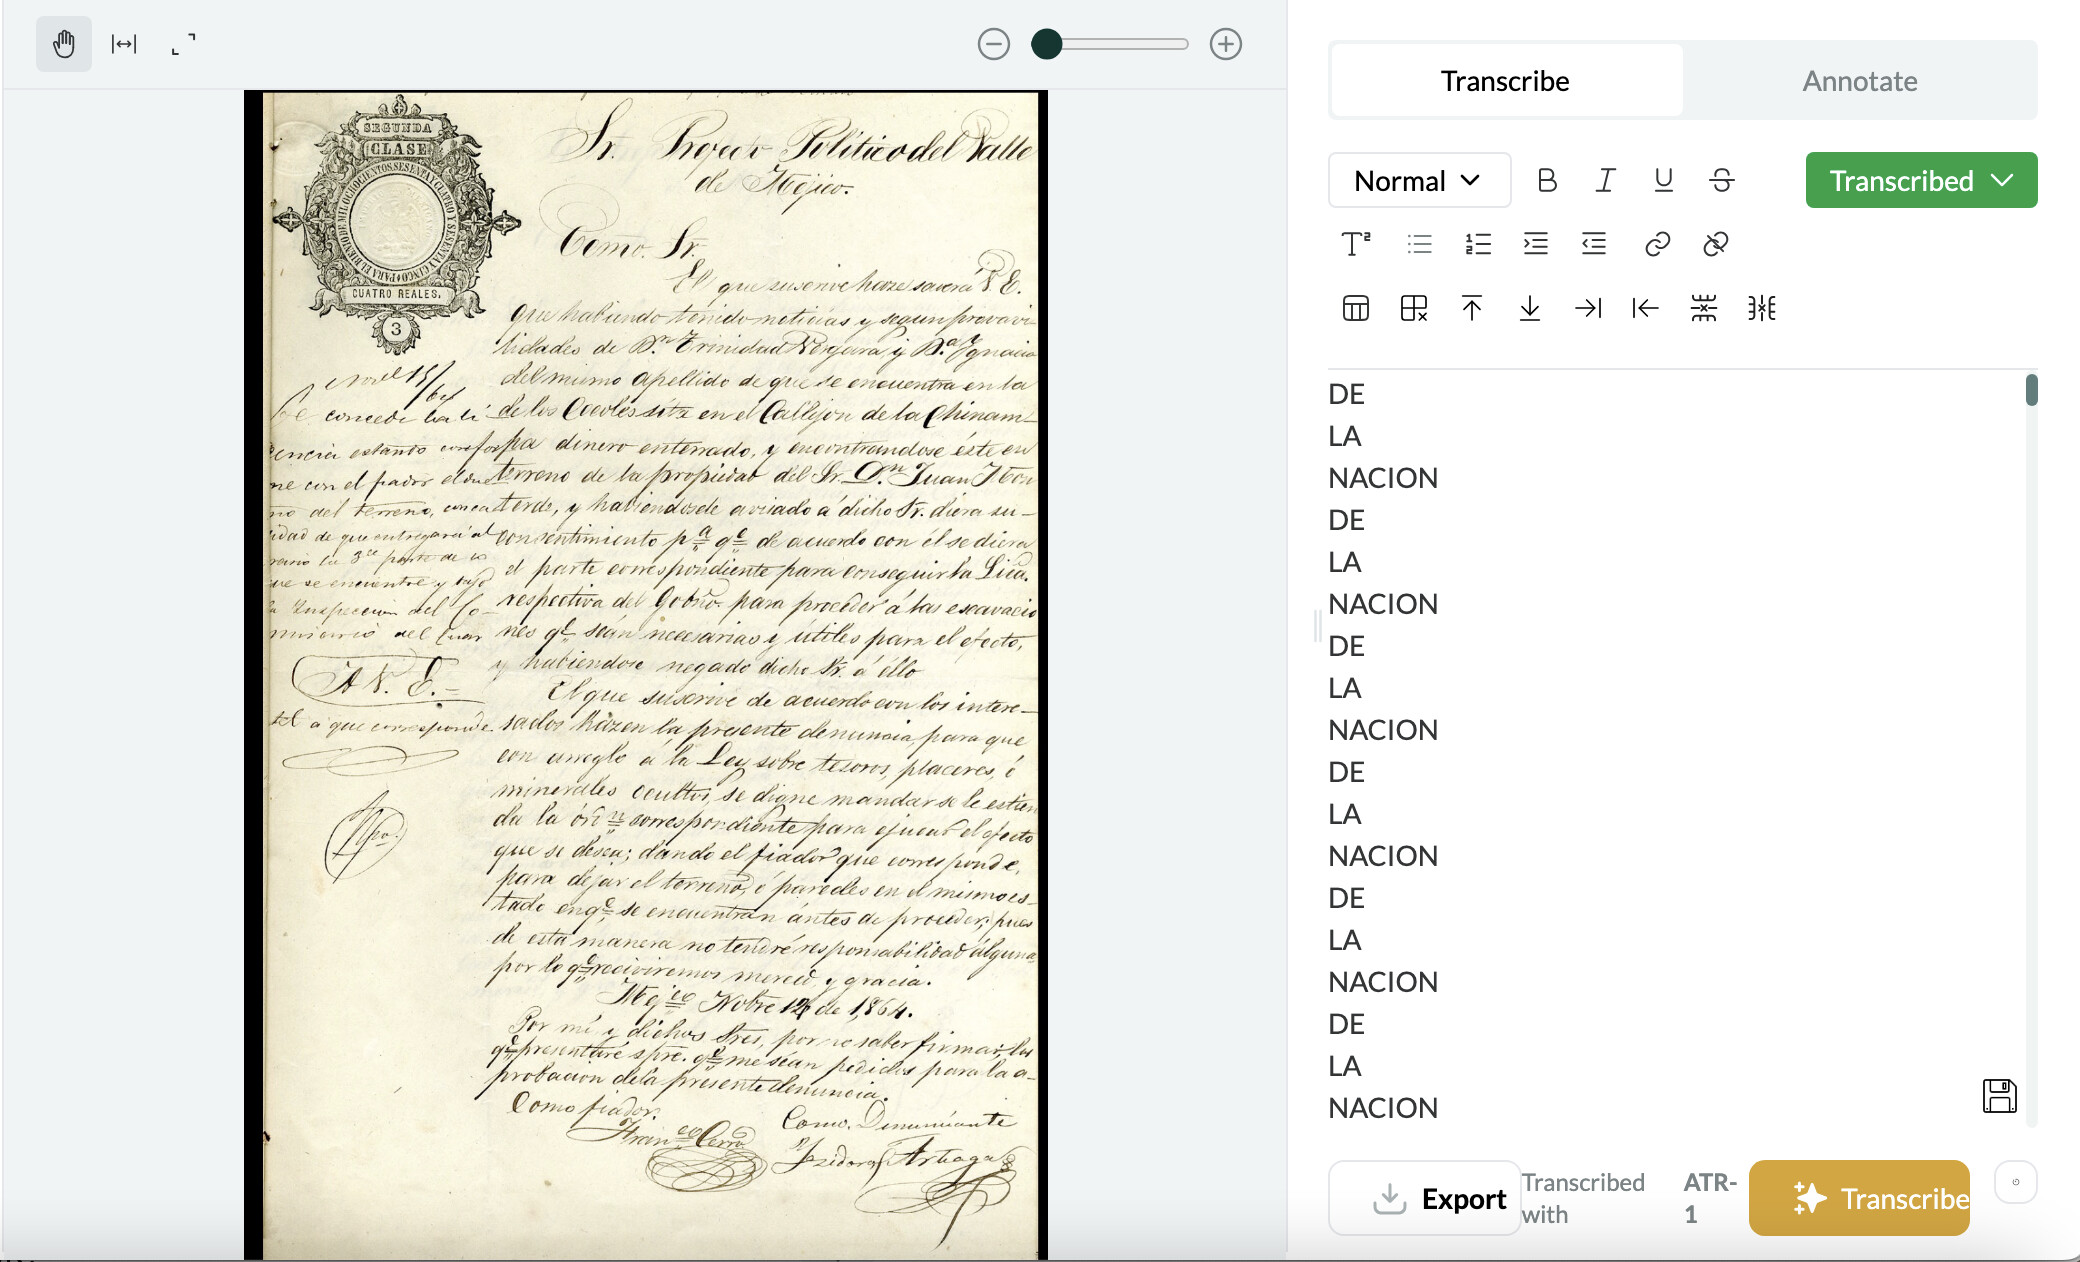 Transcribe
Annotate
Normal
Transcribed
SEGUNDA
CLASE
PARA EL BIENIO DE MIL OCHOCIENTOS SESENTA Y CUATRO Y SESENTA Y CINCO
CUATRO REALES.
3
Sr. Prefecto Político del Valle
de Mejico.
Ecmo. Sr.
El que suscrive haze saver á V. E.
que habiendo tenido noticias y segun provavi-
lidades de Dn. Trinidad Vergara, y Da. Ygnacia
del mismo apellido de que se encuentra en la
de los Coevles sita en el Callejon de la Chinam-
pa dinero enterrado, y encontrandose éste en
terreno de la propiedad del Sr. Dn. Juan Mon
terde, y habiendosele avisado á dicho Sr. diera su-
consentimiento pa. qe. de acuerdo con él se diera
el parte correspondiente para conseguir la Lica.
respectiva del Gobno. para proceder á las escavacio
nes qe. seán necesarias y útiles para el efecto,
y habiendose negado dicho Sr. á éllo
El que suscrive de acuerdo con los intere-
sados házen la presente denuncia, para que
con arreglo á la Ley sobre tesoros, placeres, ó
minerales ocultos, se digne mandar se le estien
da la órn. correspondiente para ejecutar el efecto
que se desea; dando el fiador que corresponde,
para dejar el terreno, ó paredes en el mismo es-
tado en qe. se encuentran ántes de proceder; pues
de esta manera no tendré responsabilidad álguna
por lo qe. reciviremos merced, y gracia.
Mejco. Nobre 12 de 1,864.
Por mí y dichos Sres, por no saber firmar, los
qe. presentaré spre. qe. me sean pedidos para la a-
probacion de la presente denuncia.
Como fiador.
Franco. Cerro
Como. Denunciante
Ysidoro Artiaga
Se concede la li
cencia estando confor
me con el fiador el due
ño del terreno, en ca
lidad de que entregará al
la 3ce. parte de lo
que se encuentre y bajo
la Inspeccion del Co-
misario del Cuar
A V. E.-
tel a que corresponde
DE
LA
NACION
DE
LA
NACION
DE
LA
NACION
DE
LA
NACION
DE
LA
NACION
DE
LA
NACION
Export
Transcribed with
ATR-1
Transcribe